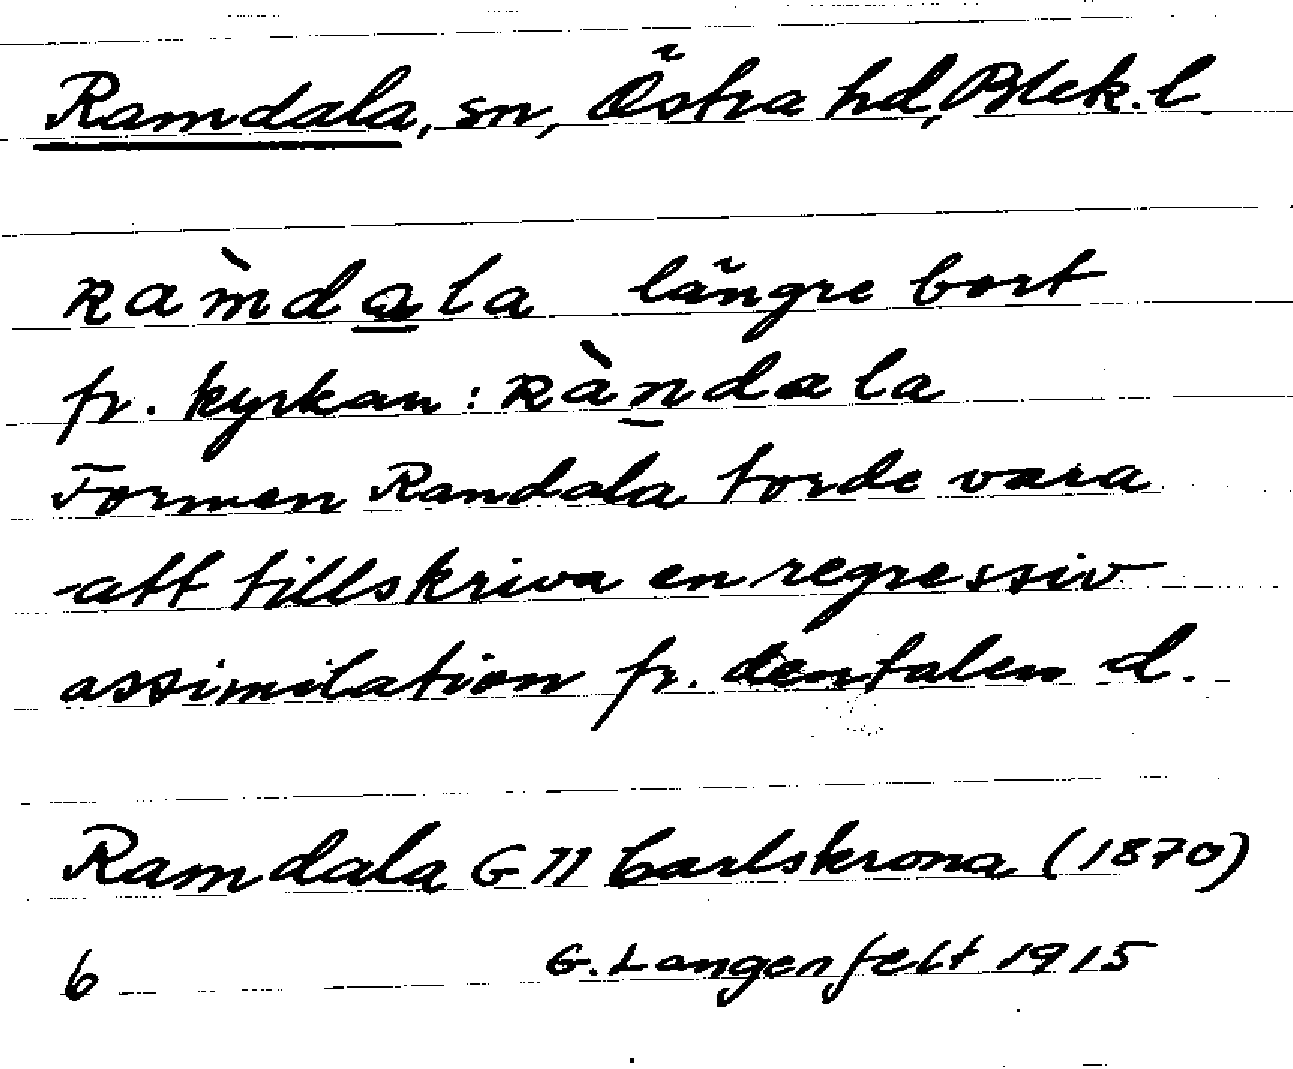 Ramdala, sn, Östra hd, Blek. l.
ʀam̀dala längre bort
fr. kyrkan: ʀàndala
Formen Randala torde vara
att tillskriva en regressiv
assimilation fr. dentalen d.
Ramdala G II Carlskrona (1870)
6 G. Langenfelt 1915